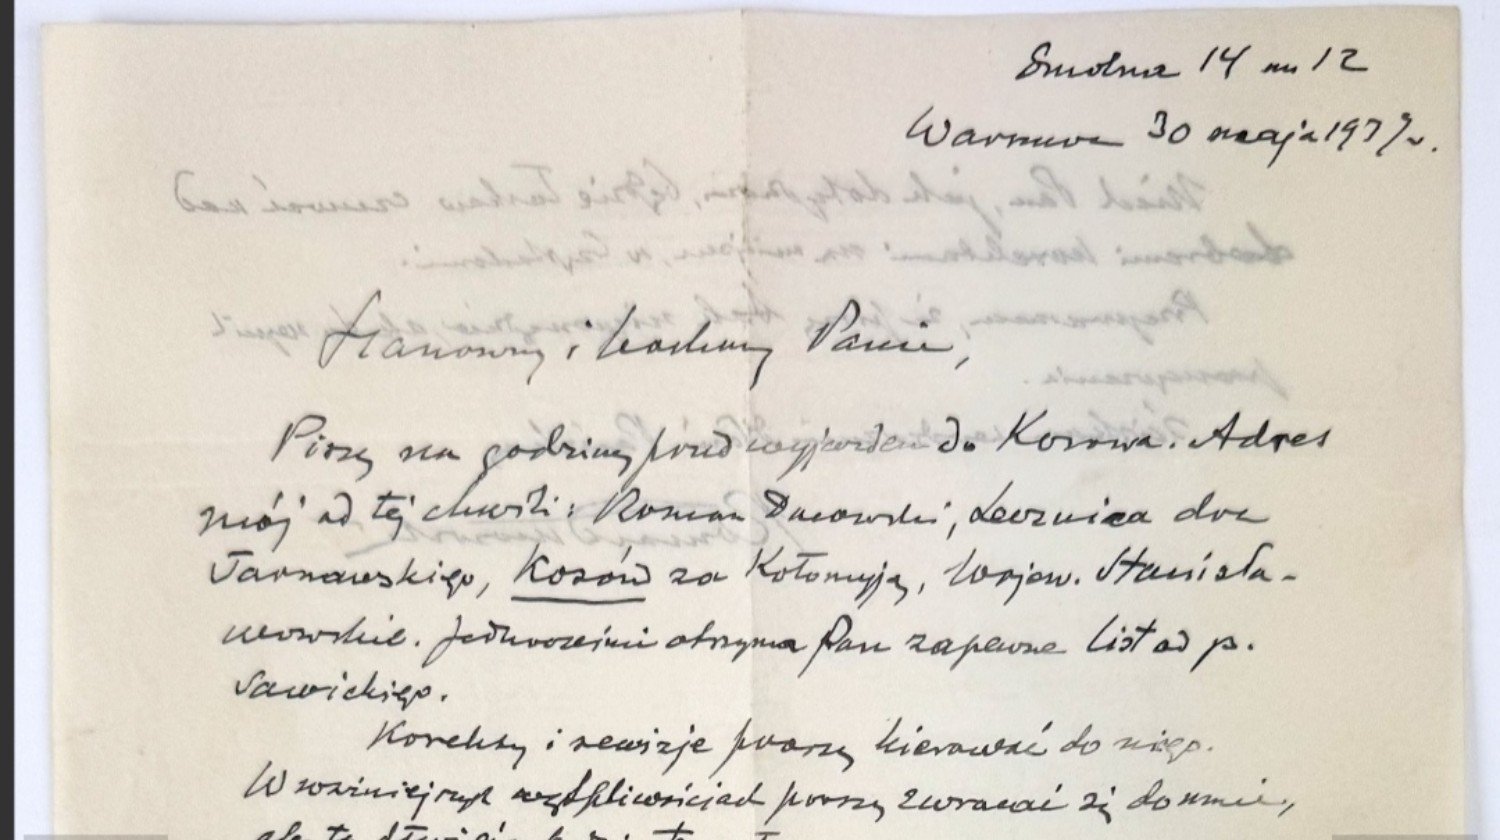 Smolna 14 m 12
Warszawa 30 maja 1937 r.
Szanowny i Kochany Panie,
Piszę na godzinę przed wyjazdem do Kosowa. Adres
mój od tej chwili: Roman Dmowski, Lecznica dra
Tarnawskiego, Kosów za Kołomyją, Wojew. Stanisła-
wowskie. Jednocześnie otrzyma Pan zapewne list od p.
Sawickiego.
Korekty i rewizje proszę kierować do niego.
W ważniejszych wątpliwościach proszę zwracać się do mnie,